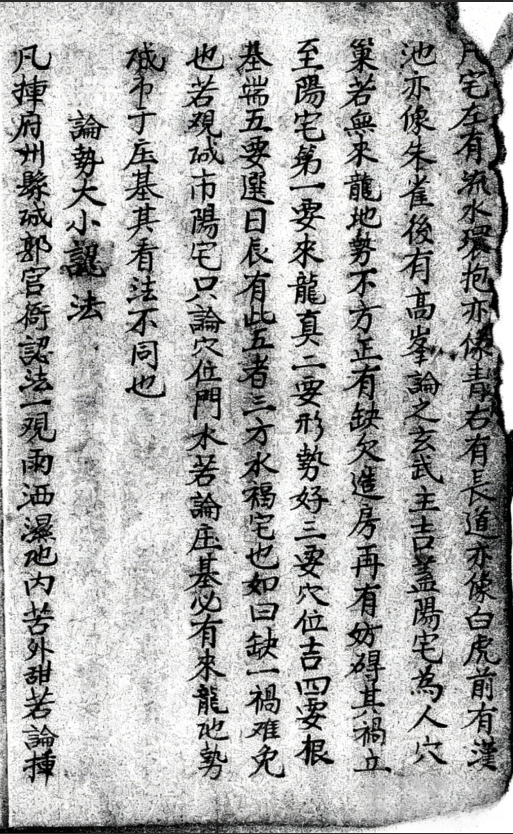 凡宅左有流水環抱亦像青右有長道亦像白虎前有漢
池亦像朱雀後有高峯論之玄武主吉蓋陽宅為人穴
巢若無來龍地勢不方正有缺欠造房再有妨碍其禍立
至陽宅第一要來龍真二要形勢好三要穴位吉四要根
基端五要選日辰有此五者三方水福宅也如曰缺一禍难免
也若观城市陽宅只論穴位門水若論庄基必有來龍地勢
城市于庄基其看法不同也
論勢大小認法
凡揷府州縣城郭官衙認法一观雨洒濕地内苦外甜若論揷